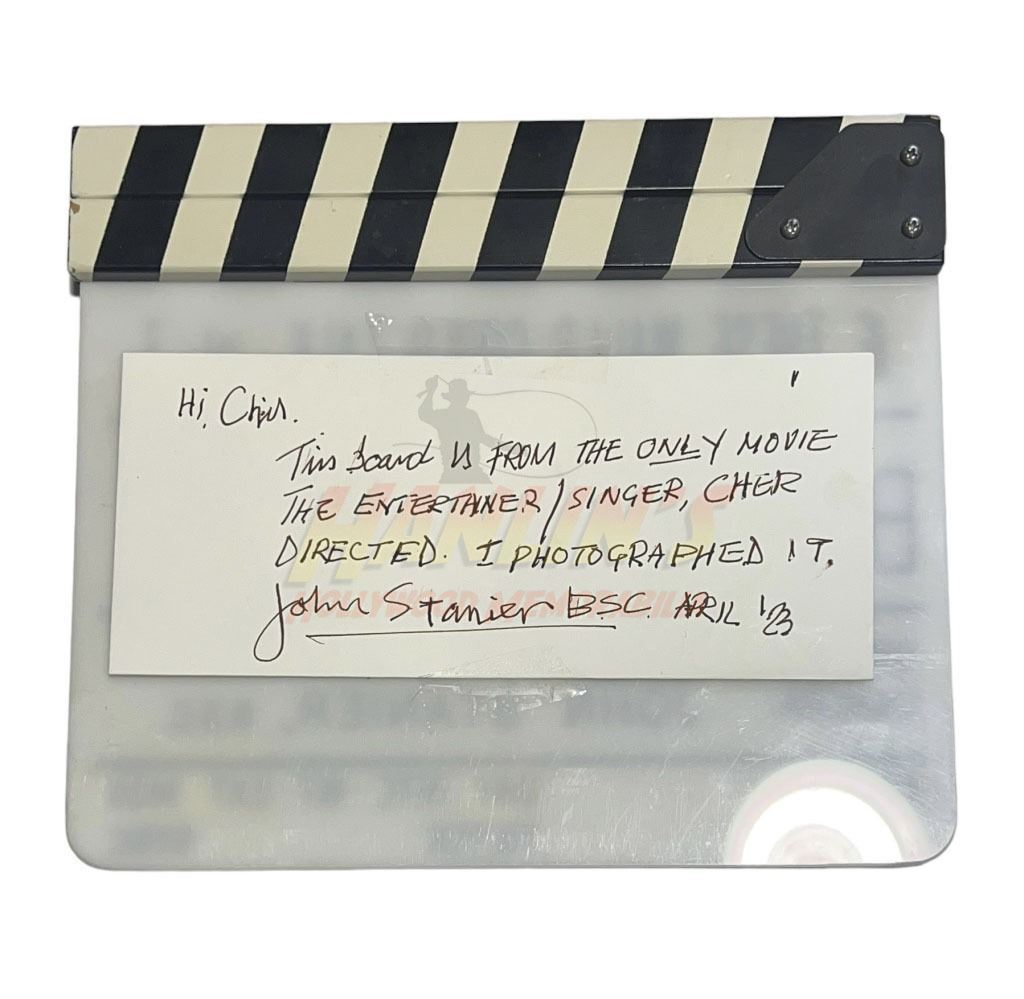 Hi, Chris.
This board is FROM THE ONLY MOVIE
THE ENTERTAINER/SINGER, CHER
DIRECTED. I PHOTOGRAPHED IT.
John Stanier BSC. APRIL '23
HANLIN'S
HOLLYWOOD MEMORABILIA